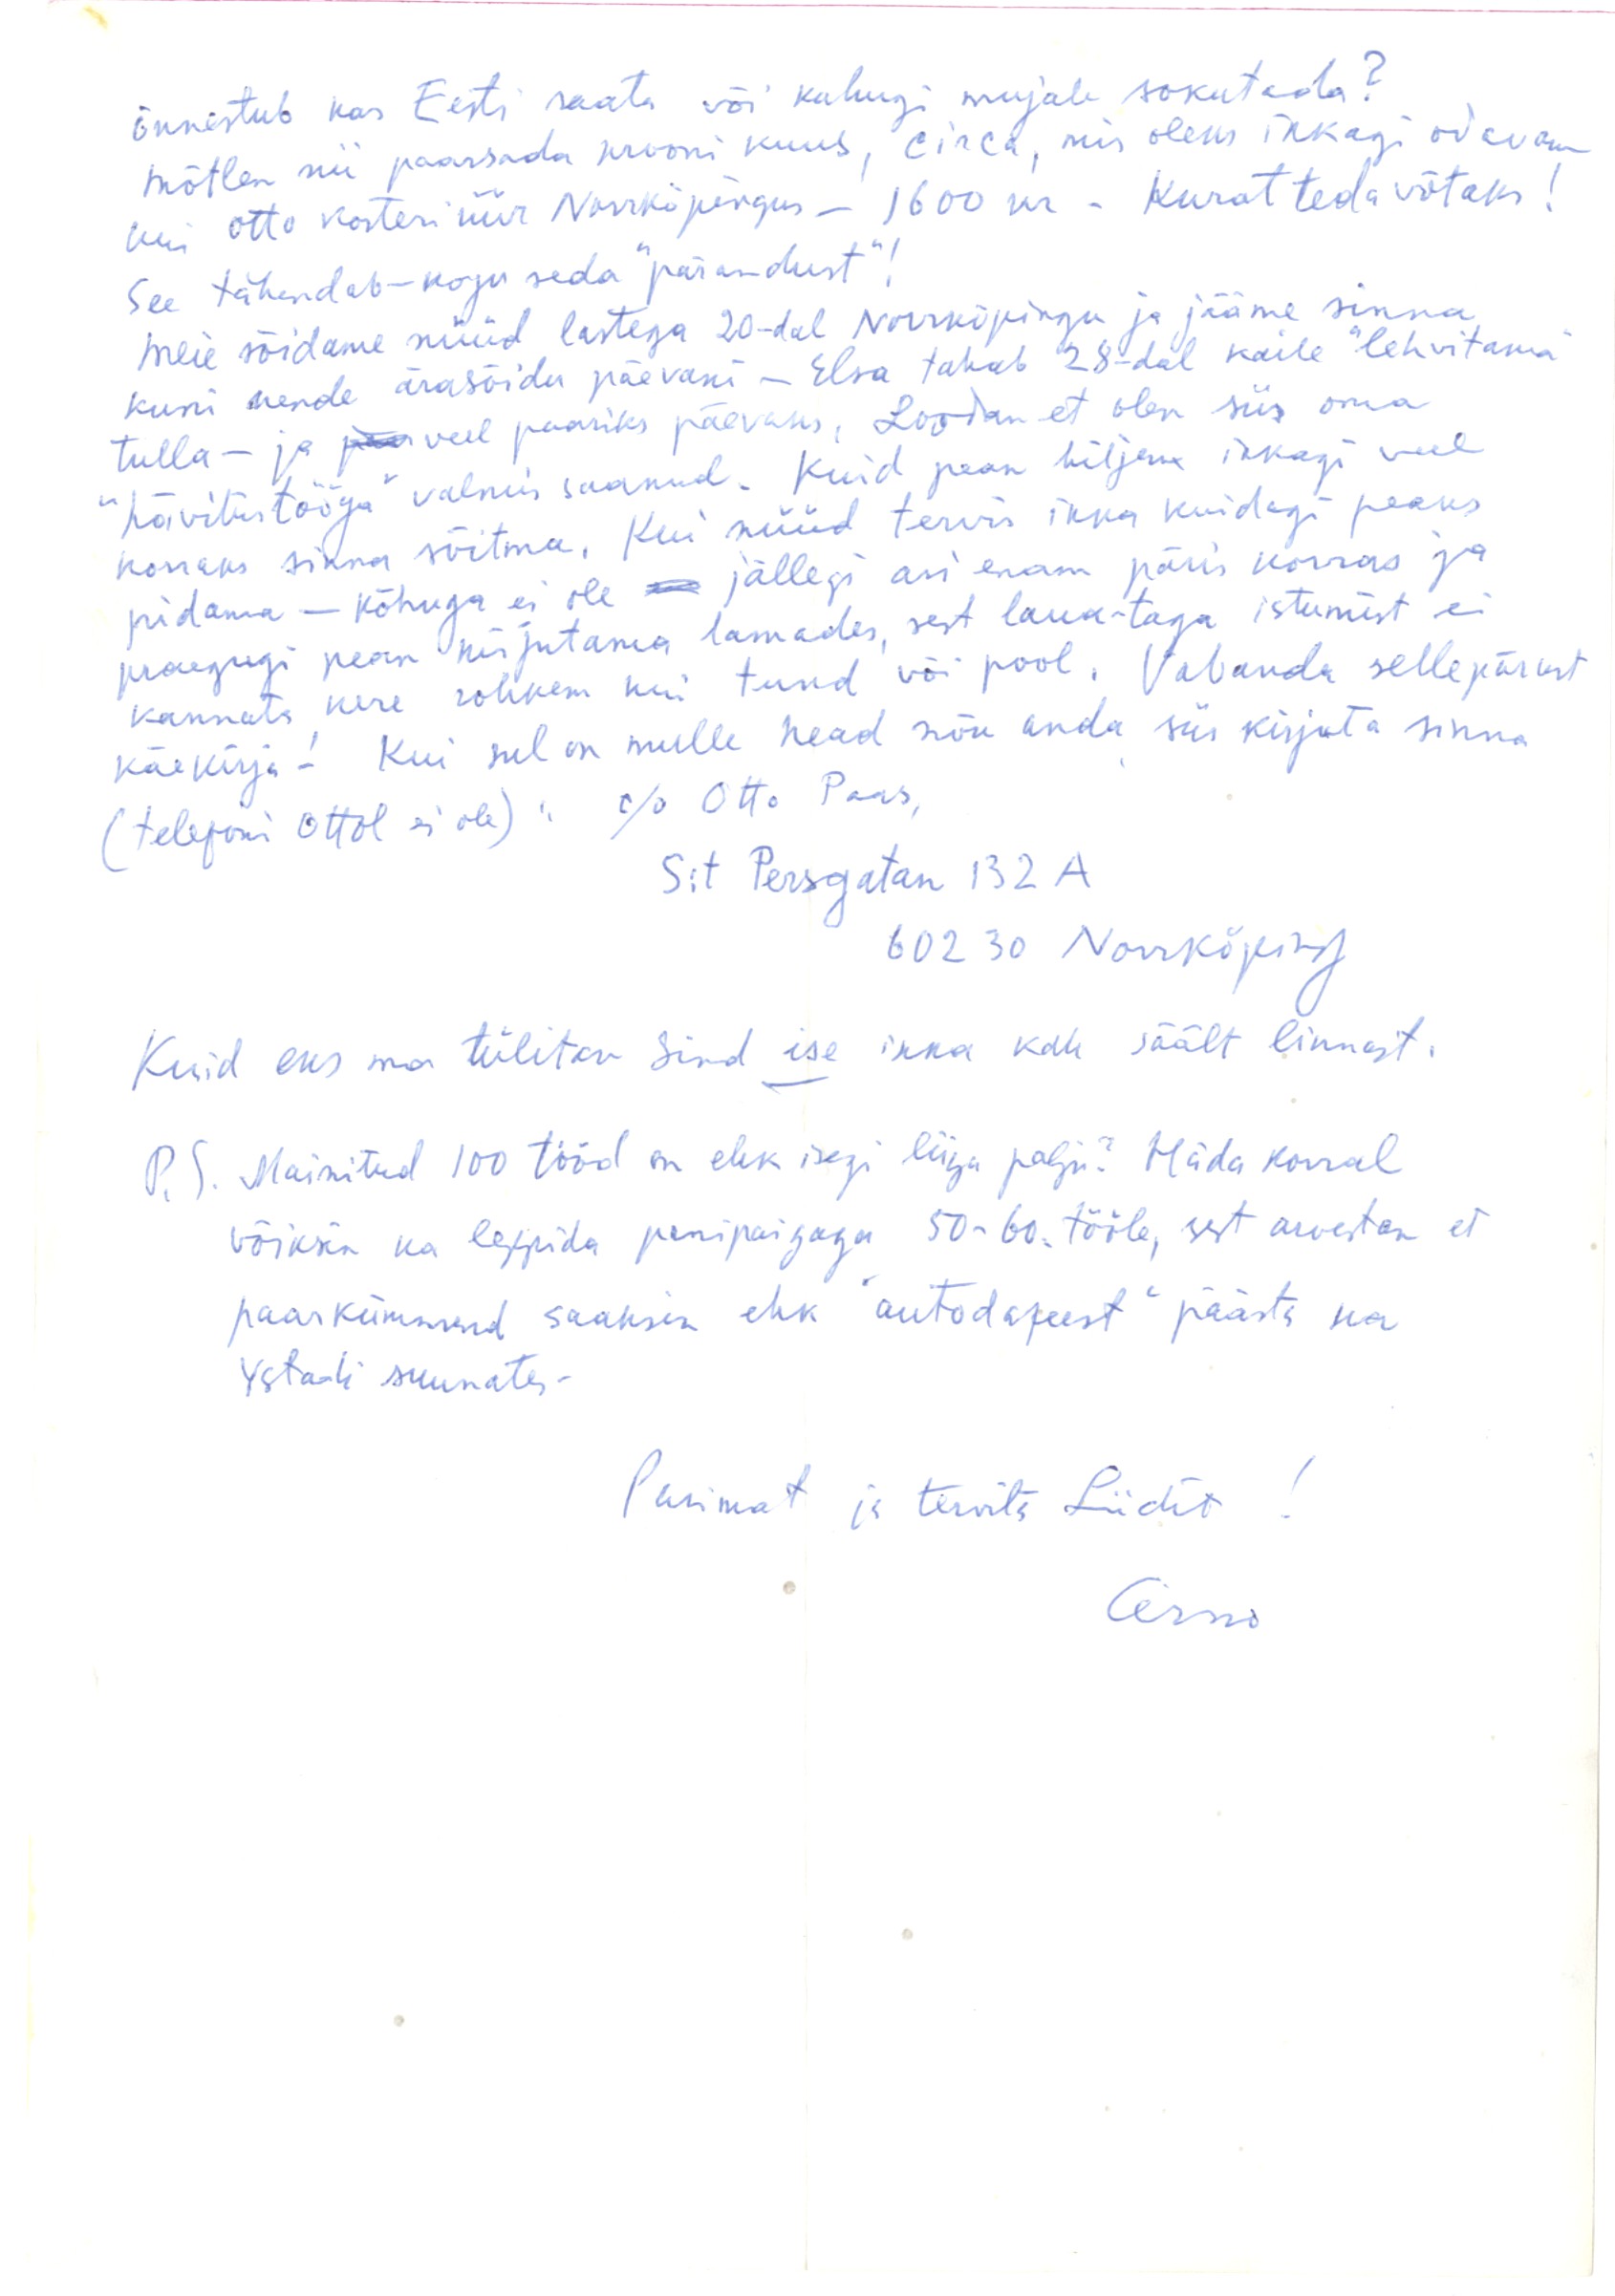 õnnestub kas Eesti saata või kuhugi mujale sokutada?
Mõtlen nii paarsada krooni kuus, circa, mis oleks ikkagi odavam
kui Otto korteri üür Norrköpingus – 1600 kr – Kurat teda võtaks!
See tähendab – kogu seda "pärandust"!
Meie sõidame nüüd lastega 20-dal Norrköpingu ja jääme sinna
kuni nende ärasõidu päevani – Elsa tahab 28-dal kaile "lehvitama"
tulla – ja veel paariks päevaks. Loodan et olen siis oma
"hävitustööga" valmis saanud. Kuid pean hiljem ikkagi veel
korraks sinna sõitma. Kui nüüd tervis ikka kuidagi peaks
pidama – kõhuga ei ole jällegi asi enam päris korras ja
praegugi pean kirjutama lamades, sest laua-taga istumist ei
kannata kere rohkem kui tund või pool. Vabanda sellepärast
käekirja! Kui sul on mulle head nõu anda, siis kirjuta sinna
(telefoni Ottol ei ole): c/o Otto Paas,
S:t Persgatan 132 A
602 30 Norrköping
Kuid eks ma tülitan Sind ise ikka kah säält linnast.
P.S. Mainitud 100 tööd on ehk isegi liiga palju? Häda korral
võiksin ka leppida panipaigaga 50-60. tööle, sest arvestan et
paarkümmend saaksin ehk "autodafeest" päästa ka
Ystadi suunates –
Parimat ja tervita Liidit!